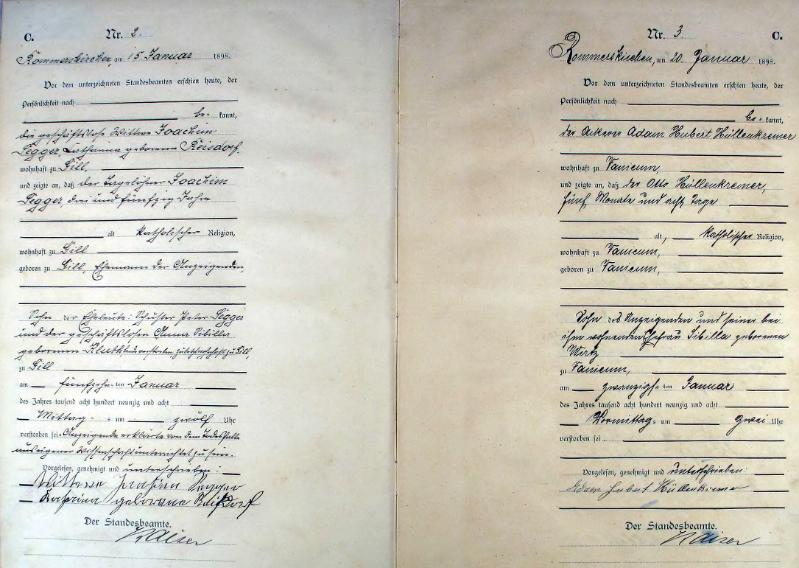 C. Nr. 2
Rommerskirchen, am 15 Januar 1898.
Vor dem unterzeichneten Standesbeamten erschien heute, der
Persönlichkeit nach
be- kannt,
die geschäftslose Wittwe Joachim
Catharina geborenen Reisdorf
wohnhaft zu Gill
und zeigte an, daß der Tagelöhner Joachim
drei und fünfzig Jahre
alt Katholischer Religion,
wohnhaft zu Gill
geboren zu Gill, Ehemann der Anzeigenden
Sohn der Eheleute: Schuster Peter
und der geschäftslosen Anna Sibilla
geborenen zuletzt wohnhaft zu Gill
zu Gill
am fünfzehnten Januar
des Jahres tausend acht hundert neunzig und acht
Mittags um zwölf Uhr
verstorben sei. Anzeigende erklärte von dem Todesfalle
aus eigener Wissenschaft unterrichtet zu sein.
Vorgelesen, genehmigt und unterschrieben:
Wittwe Joachim
Katarina geborene Reisdorf
Der Standesbeamte.
Nr. 3 C.
Rommerskirchen, am 20 Januar 1898.
Vor dem unterzeichneten Standesbeamten erschien heute, der
Persönlichkeit nach
be- kannt,
der Ackerer Adam Hubert Hüllenkremer
wohnhaft zu Vanicum,
und zeigte an, daß der Otto Hüllenkremer,
fünf Monate und acht Tage
alt, Katholischer Religion,
wohnhaft zu Vanicum,
geboren zu Vanicum,
Sohn des Anzeigenden und seiner bei
ihm wohnenden Ehefrau Sibilla geborenen
Wirtz
zu Vanicum,
am zwanzigsten Januar
des Jahres tausend acht hundert neunzig und acht
Vormittags um zwei Uhr
verstorben sei
Vorgelesen, genehmigt und unterschrieben
Adam Hubert Hüllenkremer
Der Standesbeamte.